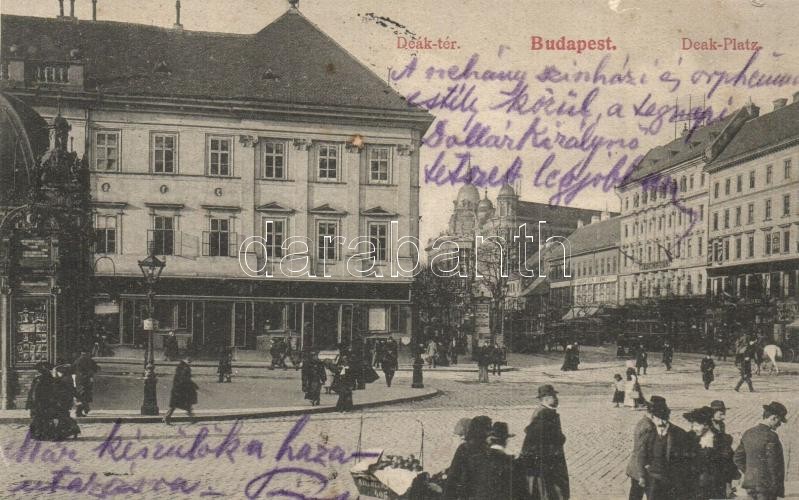 Deák-tér. Budapest. Deak-Platz.
A néhány szinházi és orpheum
esték közül, a tegnapi
Dollárkirálynő
tetszett legjobban
darabanth.com
Már készülök a haza
utazásra